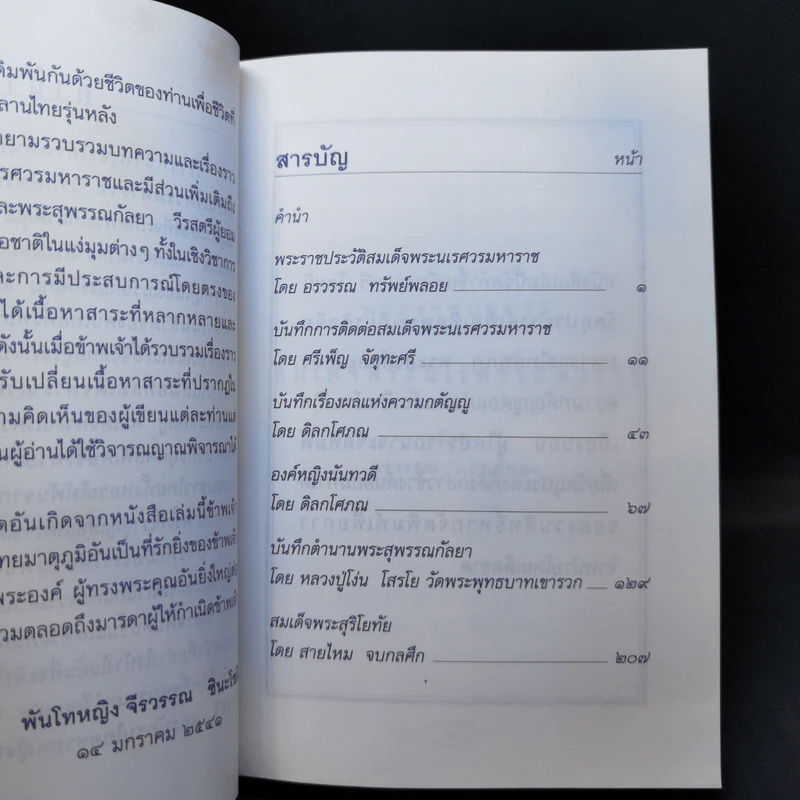 ด้วยชีวิตของท่านเพื่อชีวิตที่
ลานไทยรุ่นหลัง
รวบรวมบทความและเรื่องราว
มหาราชและมีส่วนเพิ่มเติมถึง
พระสุพรรณกัลยา วีรสตรีผู้ยอม
ชาติในแง่มุมต่างๆ ทั้งในเชิงวิชาการ
และการมีประสบการณ์โดยตรงของ
ได้เนื้อหาสาระที่หลากหลายและ
ดังนั้นเมื่อข้าพเจ้าได้รวบรวมเรื่องราว
รับเปลี่ยนเนื้อหาสาระที่ปรากฏใน
ามคิดเห็นของผู้เขียนแต่ละท่านแต่
ผู้อ่านได้ใช้วิจารณญาณพิจารณาได้
อันเกิดจากหนังสือเล่มนี้ข้าพเจ้า
มาตุภูมิอันเป็นที่รักยิ่งของข้าพเจ้า
พระองค์ ผู้ทรงพระคุณอันยิ่งใหญ่
วมตลอดถึงมารดาผู้ให้กำเนิดข้าพเจ้า
พันโทหญิง จีรวรรณ
๑๔ มกราคม ๒๕๔๑
สารบัญ หน้า
คำนำ
พระราชประวัติสมเด็จพระนเรศวรมหาราช
โดย อรวรรณ ทรัพย์พลอย ๑
บันทึกการติดต่อสมเด็จพระนเรศวรมหาราช
โดย ศรีเพ็ญ จัตุทะศรี ๑๑
บันทึกเรื่องผลแห่งความกตัญญู
โดย ดิลกโศภณ ๔๓
องค์หญิงนันทวดี
โดย ดิลกโศภณ ๖๗
บันทึกตำนานพระสุพรรณกัลยา
โดย หลวงปู่โง่น โสรโย วัดพระพุทธบาทเขารวก ๑๒๙
สมเด็จพระสุริโยทัย
โดย สายไหม จบกลศึก ๒๐๗